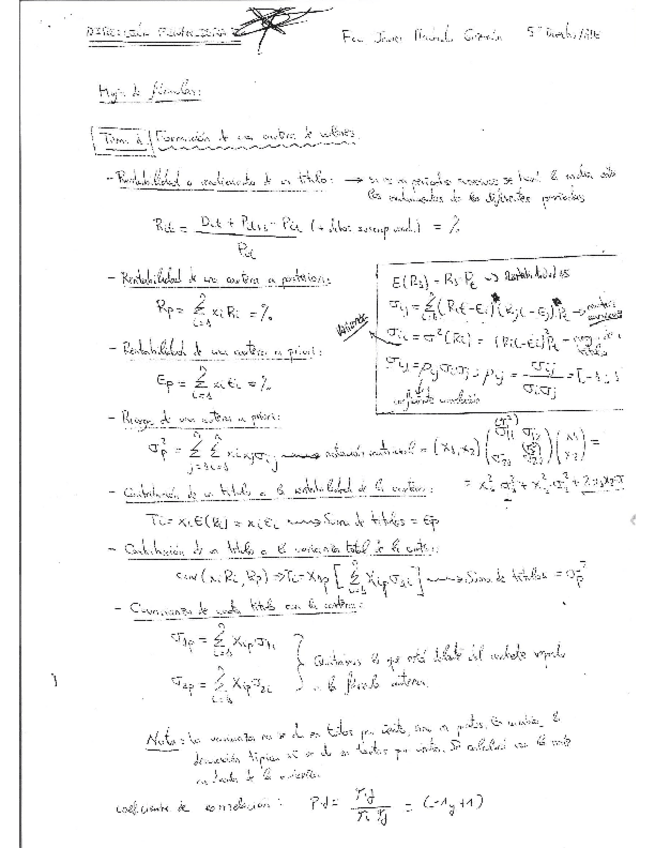 DIRECCIÓN FINANCIERA
Fco Javier 5º Derecho/ADE
Hoja de fórmulas:
Tema 2: Formación de una cartera de valores
- Rentabilidad o rendimiento de un título: → si es en períodos sucesivos se hará la media entre
los rendimientos de los diferentes períodos
Rit = (Dit + Pit+1 - Pit (+ dchos suscrip. vend.)) / Pit = %
- Rentabilidad de una cartera a posteriori:
Rp = Σ xi Ri = %
- Rentabilidad de una cartera a priori:
Ep = Σ xi Ei = %
E(R1) = R1 · Pt → Rentabilidad
Varianza
σii = σ²(Ri) = (Ri - Ei)² Pt
σij = ρij σi σj ; ρij = σij / (σi σj) = [-1 ; 1
coeficiente correlación
- Riesgo de una cartera a priori:
σp² = Σ Σ xi xj σij → = (x1, x2) (σ11 σ12 σ21 σ22) (x1 x2) =
= x1² σ1² + x2² σ2² + 2 x1 x2 σ
- Contribución de un título a la rentabilidad de la cartera:
Ti = xi E(Ri) = xi Ei → Suma de títulos = Ep
- Contribución de un título a la varianza total de la cartera:
cov(xi Ri, Rp) → Ti = X1p [Σ Xip σ1i] → Suma de títulos = σp²
- Covarianza de cada título con la cartera:
σ1p = Σ Xip σ1i
σ2p = Σ Xip σ2i
Quitamos lo que está delante del corchete respecto
a la fórmula anterior.
Nota: La varianza no se da en tantos por ciento, sino en puntos. En cambio, la
desviación típica sí se da en tantos por ciento. Se calcula con la raíz
cuadrada de la varianza
coeficiente de correlación: Pij = σij / (σi σj) = (-1 y +1)